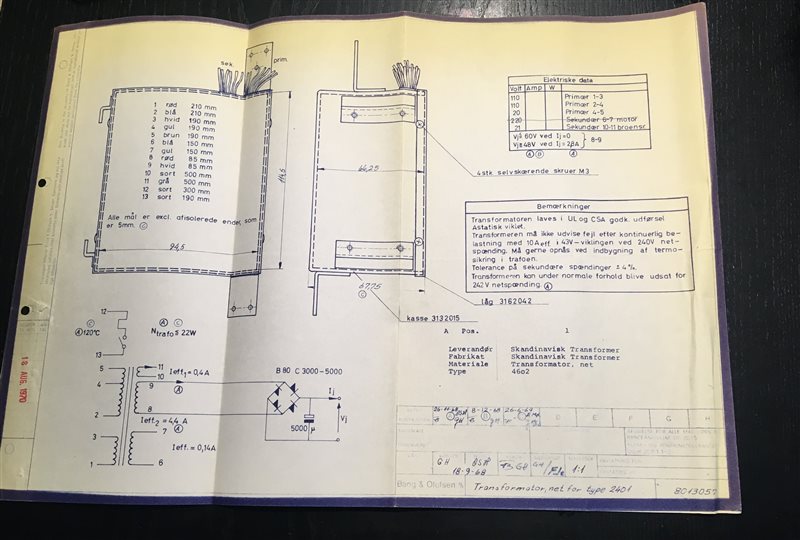 sek.
prim.
1 rød 210 mm
2 blå 210 mm
3 hvid 190 mm
4 gul 190 mm
5 brun 190 mm
6 blå 150 mm
7 gul 150 mm
8 rød 85 mm
9 hvid 85 mm
10 sort 500 mm
11 grå 500 mm
12 sort 300 mm
13 sort 190 mm
Alle mål er excl. afisolerede ender, som
er 5mm. C
94,5
114,5
66,25
67,75
C
4 stk selvskærende skruer M3
låg 3162042
kasse 3132015
Elektriske data
Volt Amp W
110 Primær 1-3
110 Primær 2-4
20 Primær 4-5
220 Sekundær 6-7 motor
21 Sekundær 10-11 broensr.
Vj≤ 60V ved Ij=0
Vj≥ 48V ved Ij=2,8A
8-9
A D A
Bemærkninger
Transformatoren laves i UL og CSA godk. udførsel
Astatisk viklet.
Transformeren må ikke udvise fejl efter kontinuerlig be-
lastning med 10 Aeff i 43V-viklingen ved 240V net-
spænding. Må gerne opnås ved indbygning af termo-
sikring i trafoen.
Tolerance på sekundære spændinger ± 4%.
Transformeren kan under normale forhold blive udsat for
242V netspænding. A
A Pos. 1
Leverandør : Skandinavisk Transformer
Fabrikat : Skandinavisk Transformer
Materiale : Transformator, net
Type : 4602
12
C
A 120°C
13
A C
Ntrafo ≤ 22W
5
4
2
3
1
11
10
9
8
7
6
Ieff1 = 0,4A
A
Ieff2 = 4,4A
A
Ieff. = 0,14A
B 80 C 3000-5000
Ij
Vj
5000 µ
18 AUG. 1970
8-12-68
D E F G H
GH
18-9-68
GH
1:1
Bang & Olufsen
Transformator, net for type 2401
8013057